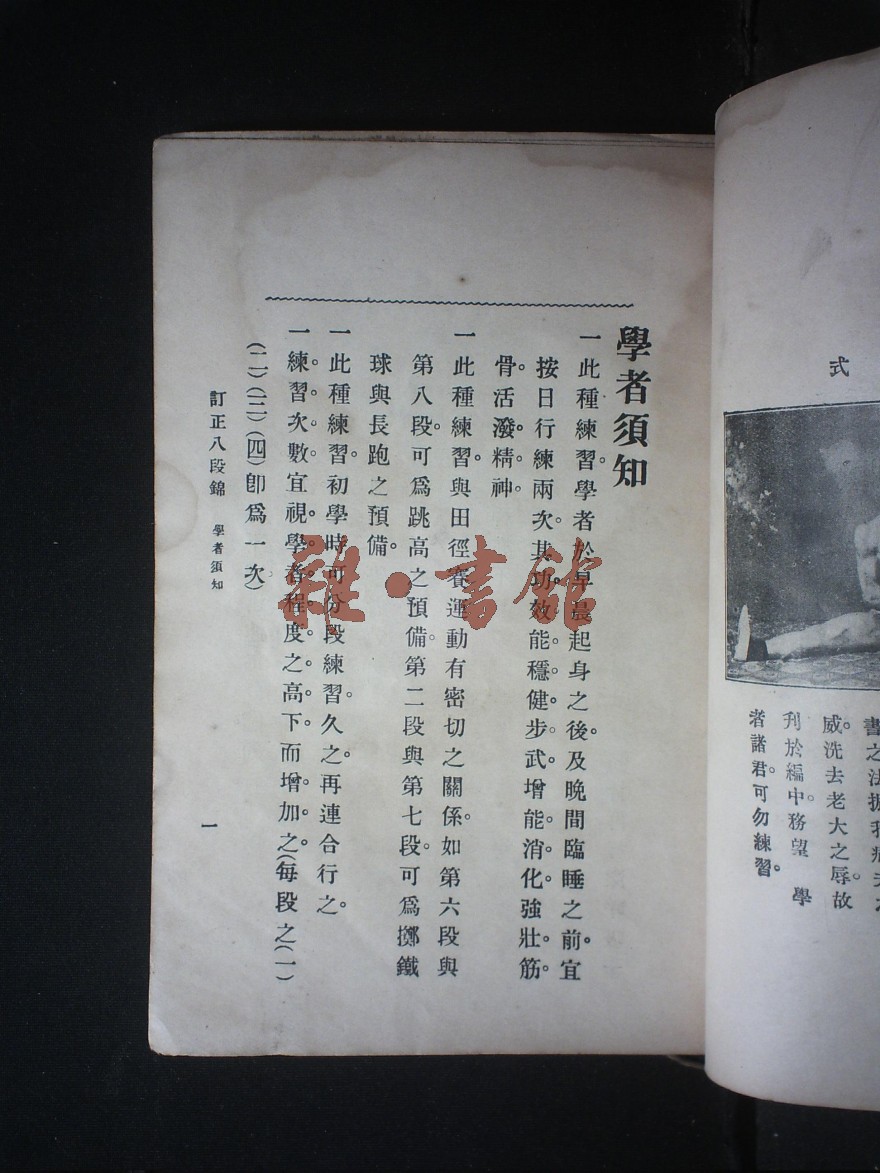 式
書之法拔我病夫之
威。洗去老大之辱故
刋於編中。務望　學
者諸君。可勿練習。
學者須知
一此種練習。學者於早晨起身之後。及晚間臨睡之前。宜
按日行練兩次。其功效能穩健步武。增能消化。強壯筋
骨。活潑精神。
一此種練習。與田徑賽運動有密切之關係。如第六段與
第八段。可爲跳高之預備。第二段與第七段。可爲擲鐵
球與長跑之預備。
一此種練習。初學時可分段練習。久之。再連合行之。
一練習次數。宜視學者程度之高下。而增加之。(每段之(一)
(二)(三)(四)卽爲一次)
訂正八段錦　學者須知
一
雜·書館